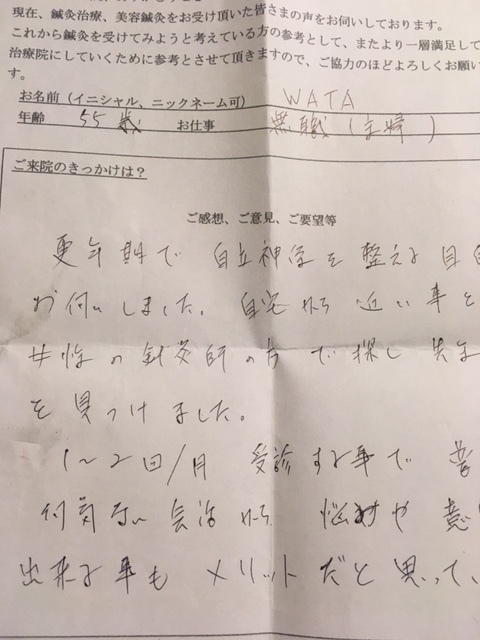 現在、鍼灸治療、美容鍼灸をお受け頂いた皆さまの声をお伺いしております。
これから鍼灸を受けてみようと考えている方の参考として、またより一層満足して
治療院にしていくために参考とさせて頂きますので、ご協力のほどよろしくお願い
す。
お名前（イニシャル、ニックネーム可） WATA
年齢 55歳 お仕事 無職（主婦）
ご来院のきっかけは？
ご感想、ご意見、ご要望等
更年期で 自立神経を整える目
お伺いしました。 自宅から近い事と
女性の針灸師の方で探し 先生
を見つけました。
1〜2回/月 受診する事で
何気ない会話から 悩みや意
出来る事も メリットだと思って、